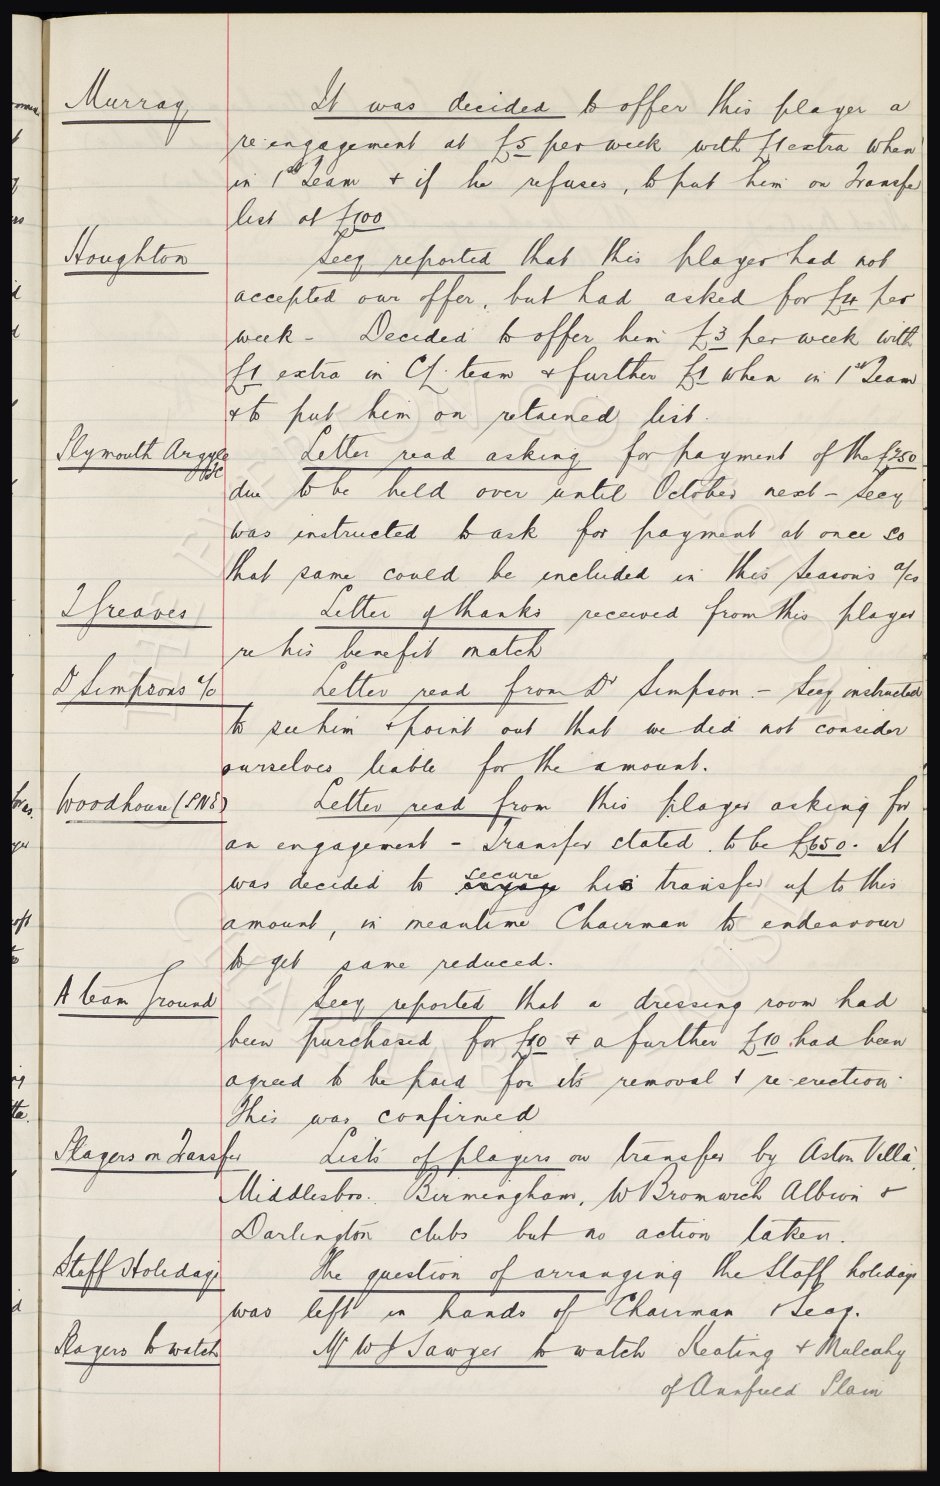 Murray It was decided to offer this player a
re-engagement at £5 per week with £1 extra when
in 1st Team + if he refuses, to put him on Transfer
list at £100
Houghton Secy reported that this player had not
accepted our offer, but had asked for £4 per
week - Decided to offer him £3 per week with
£1 extra in CL team + further £1 when in 1st Team
+ to put him on retained list.
Plymouth Argyle Letter read asking for payment of the £250
due to be held over until October next - Secy
was instructed to ask for payment at once so
that same could be included in this Season's a/cs
T Greaves Letter of thanks received from this player
re his benefit match
Dr Simpsons a/c Letter read from Dr Simpson - Secy instructed
to see him + point out that we did not consider
ourselves liable for the amount.
Woodhouse (PNE) Letter read from this player asking for
an engagement - Transfer stated to be £650. It
was decided to secure his transfer up to this
amount, in meantime Chairman to endeavour
to get same reduced.
A team Ground Secy reported that a dressing room had
been purchased for £10 + a further £10 had been
agreed to be paid for its removal + re-erection.
This was confirmed
Players on Transfer Lists of players on transfer by Aston Villa,
Middlesboro. Birmingham, W Bromwich Albion +
Darlington clubs but no action taken.
Staff Holidays The question of arranging the Staff holidays
was left in hands of Chairman + Secy.
Players to watch Mr W J Sawyer to watch Keating + Mulcahy
of Annfield Plain